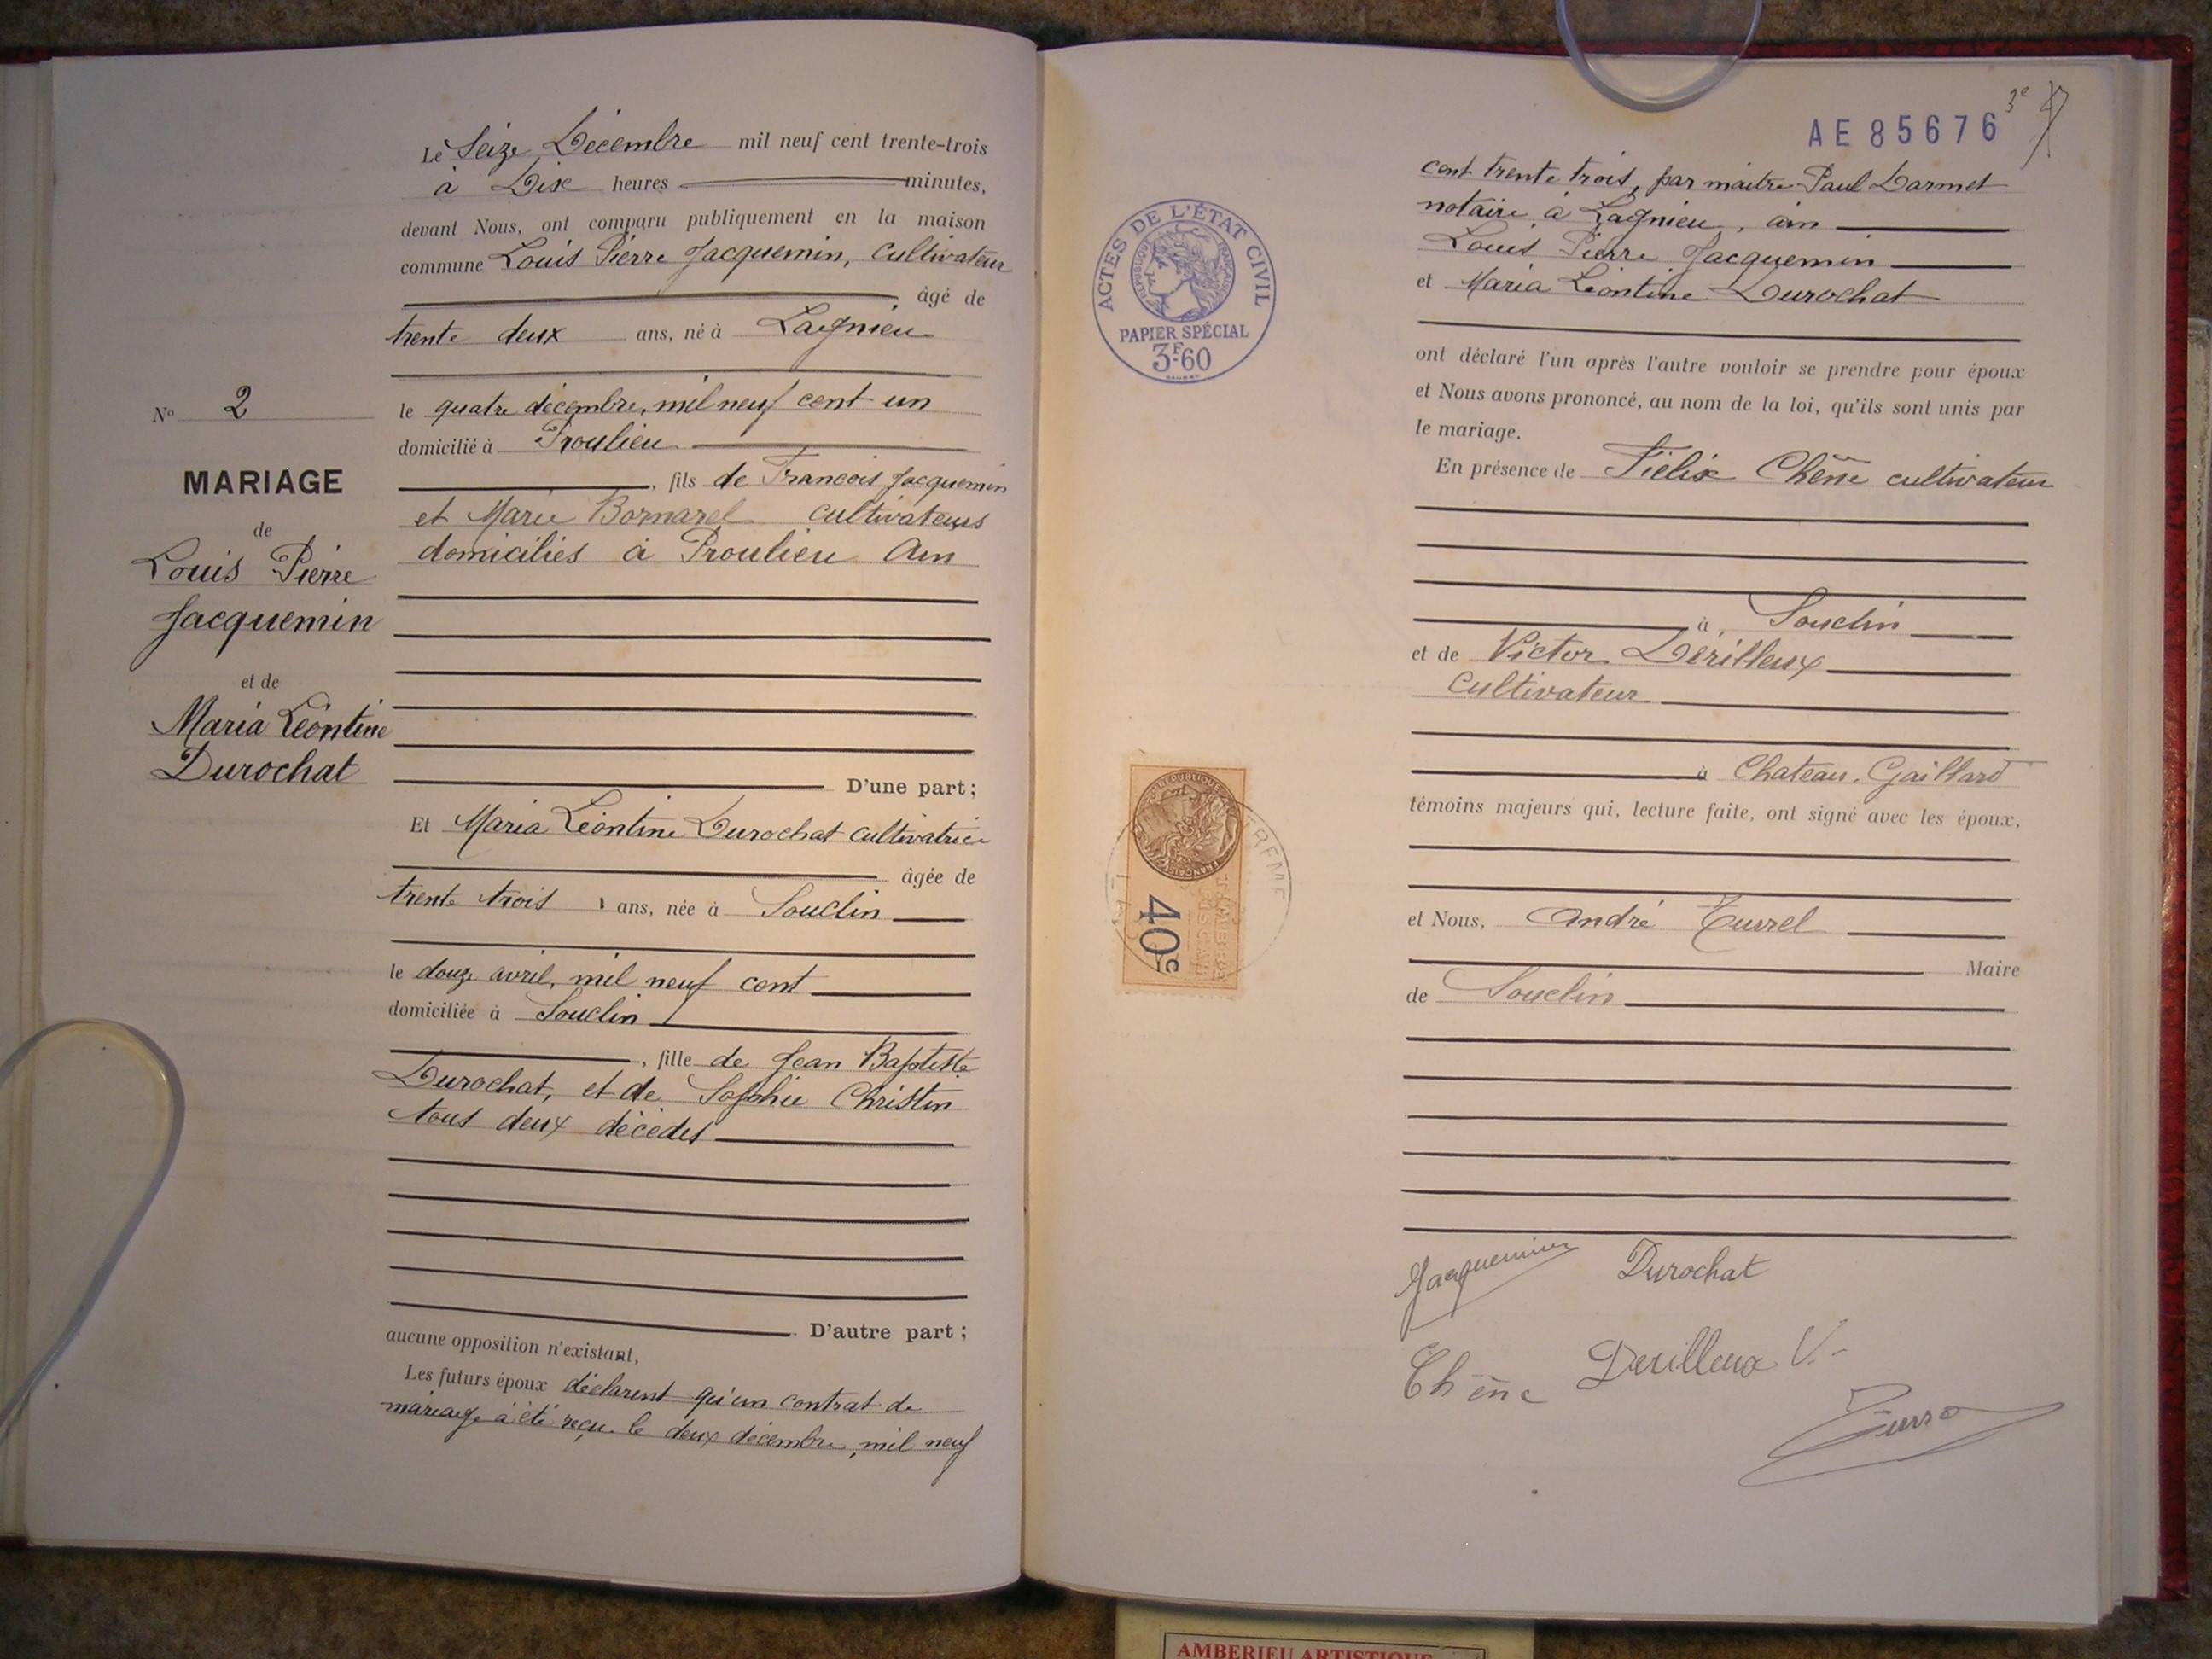 Le Seize Décembre mil neuf cent trente-trois
à Dix heures minutes,
devant Nous, ont comparu publiquement en la maison
commune Louis Pierre Jacquemin, Cultivateur
âgé de
trente deux ans, né à Lagnieu
le quatre décembre, mil neuf cent un
domicilié à Proulieu
, fils de Francois Jacquemin
et Marie Bornarel cultivateurs
domiciliés à Proulieu Ain
D'une part;
Et Maria Léontine Durochat cultivatrice
âgée de
trente trois ans, née à Souclin
le douze avril, mil neuf cent
domiciliée à Souclin
, fille de Jean Baptiste
Durochat, et de Sophie Christin
tous deux décédés
D'autre part;
aucune opposition n'existant,
Les futurs époux déclarent qu'un contrat de
mariage a été reçu le deux décembre, mil neuf
N° 2
MARIAGE
de
Louis Pierre
Jacquemin
et de
Maria Léontine
Durochat
3e
AE 85676
cent trente trois, par maitre Paul Darmet
notaire à Lagnieu, ain
Louis Pierre Jacquemin
et Maria Léontine Durochat
ont déclaré l'un après l'autre vouloir se prendre pour époux
et Nous avons prononcé, au nom de la loi, qu'ils sont unis par
le mariage.
En présence de Félix Chêne cultivateur
à Souclin
et de Victor Derilleux
Cultivateur
à Chateau-Gaillard
témoins majeurs qui, lecture faite, ont signé avec les époux,
et Nous, André Turrel
Maire
de Souclin
Jacquemin Durochat
Chêne Derilleux V.
ACTES DE L'ÉTAT CIVIL
RÉPUBLIQUE FRANÇAISE
PAPIER SPÉCIAL
3F60
40c
AMBERIEU ARTISTIQUE